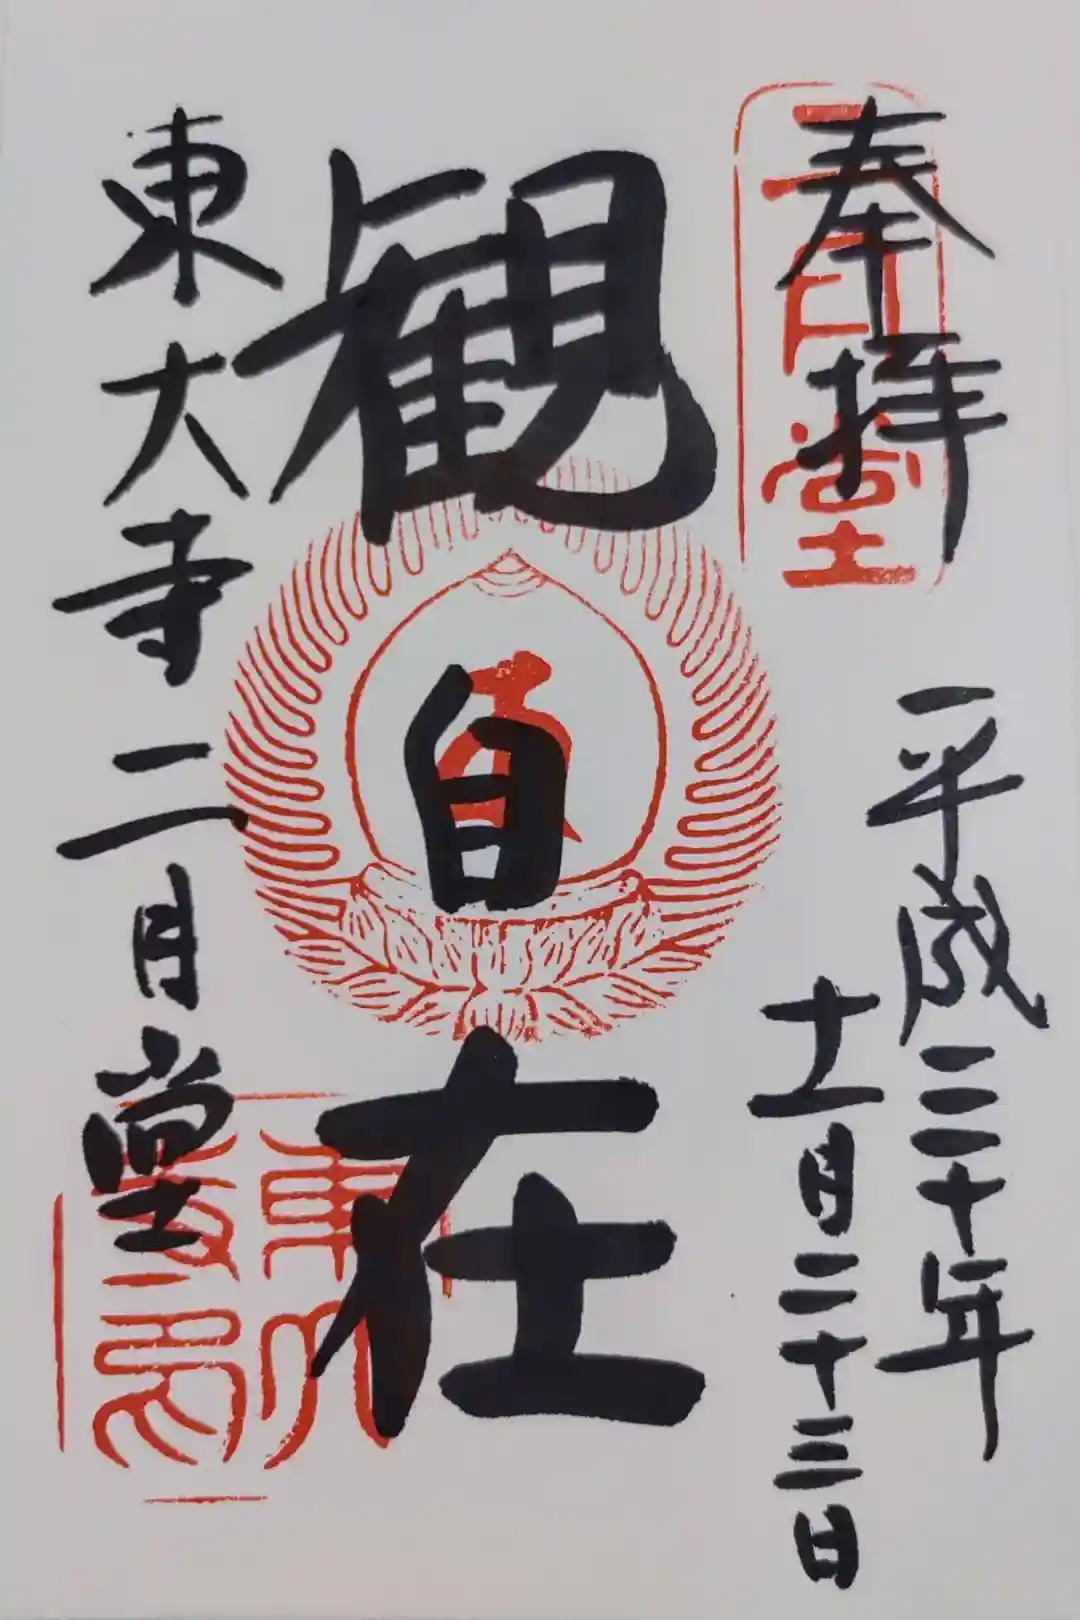 奉拝
二月堂
平成三十年
十一月二十三日
観自在
東大寺二月堂
東大寺印